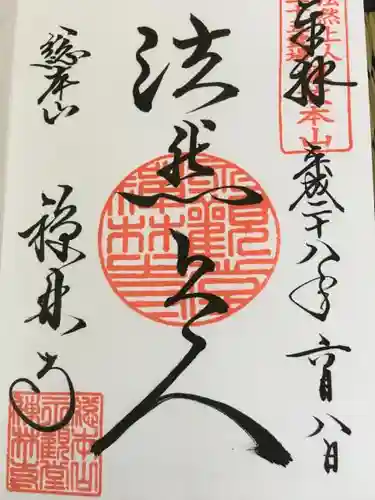 奉拝
平成二十八年六月八日
法然上人
総本山
禅林寺
法然上人
総本山
永観堂
禅林寺